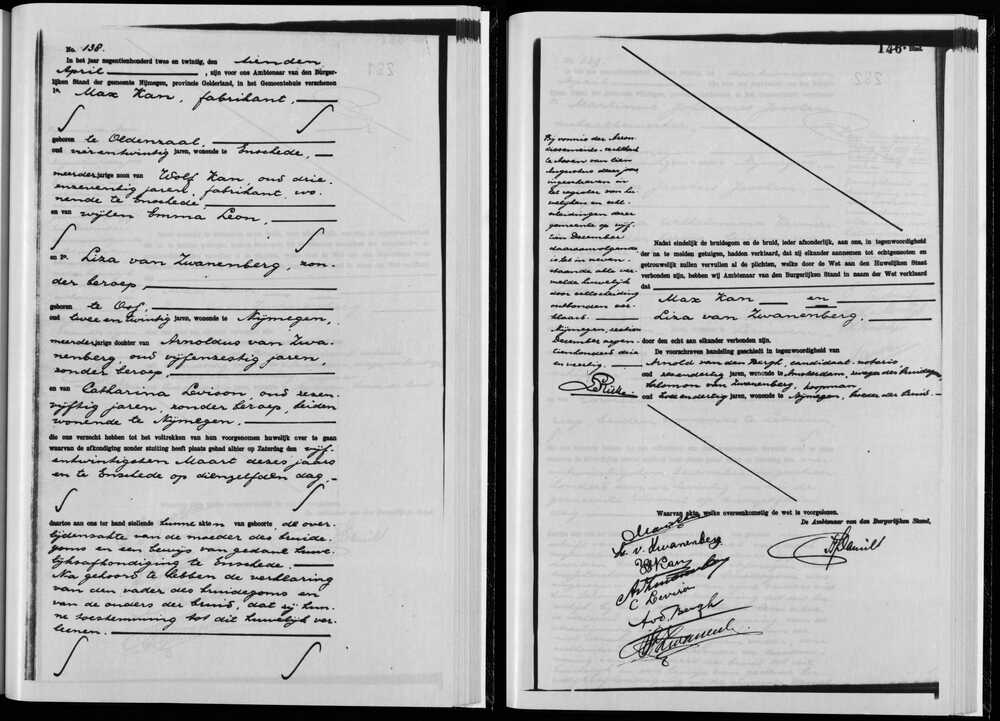 No. 138.
In het jaar negentienhonderd twee en twintig, den tienden
April, zijn voor ons Ambtenaar van den Burger-
lijken Stand der gemeente Nijmegen, provincie Gelderland, in het Gemeentehuis verschenen
1o. Max Kan, fabrikant,
geboren te Oldenzaal,
oud vierentwintig jaren, wonende te Enschede,
meerderjarige zoon van Wolf Kan, oud drie-
enzeventig jaren, fabrikant, wo-
nende te Enschede,
en van wijlen Emma Leon,
en 2o. Liza van Zwanenberg, zon-
der beroep,
geboren te Oss,
oud twee en twintig jaren, wonende te Nijmegen,
meerderjarige dochter van Arnoldus van Zwa-
nenberg, oud vijfenzestig jaren,
zonder beroep,
en van Catharina Levison, oud zesen-
vijftig jaren, zonder beroep, beiden
wonende te Nijmegen.
die ons verzocht hebben tot het voltrekken van hun voorgenomen huwelijk over te gaan
waarvan de afkondiging zonder stuiting heeft plaats gehad alhier op Zaterdag den vijf-
entwintigsten Maart dezes jaars
en te Enschede op dienzelfden dag,
daartoe aan ons ter hand stellende hunne akten van geboorte, de over-
lijdensakte van de moeder des bruide-
goms en een bewijs van gedane huwe-
lijksafkondiging te Enschede.
Na gehoord te hebben de verklaring
van den vader des bruidegoms en
van de ouders der bruid, dat zij hun-
ne toestemming tot dit huwelijk ver-
leenen.
146e Blad.
Bij vonnis der Arron
dissements-rechtbank
te Assen van tien
Augustus dezes jaars
ingeschreven in
het register van hu-
welijken en echt-
scheidingen dezer
gemeente op vijf-
tien December
daaraanvolgende
is het in neven-
staande akte ver-
melde huwelijk
door echtscheiding
ontbonden ver-
klaard.
Nijmegen, zestien
December negen-
tienhonderd drie
en veertig.
Nadat eindelijk de bruidegom en de bruid, ieder afzonderlijk, aan ons, in tegenwoordigheid
der na te melden getuigen, hadden verklaard, dat zij elkander aannemen tot echtgenooten en
getrouwelijk zullen vervullen al de plichten, welke door de Wet aan den Huwelijken Staat
verbonden zijn, hebben wij Ambtenaar van den Burgerlijken Stand in naam der Wet verklaard
dat
Max Kan en
Liza van Zwanenberg,
door den echt aan elkander verbonden zijn.
De voorschreven handeling geschiedt in tegenwoordigheid van
Arnold van den Bergh, candidaat-notaris
oud zesendertig jaren, wonende te Amsterdam, zwager des bruidegoms
Salomon van Zwanenberg, koopman,
oud twee en dertig jaren, wonende te Nijmegen, broeder der bruid.
Waarvan akte, welke overeenkomstig de wet is voorgelezen.
De Ambtenaar van den Burgerlijken Stand,
L. v. Zwanenberg
W Kan
C Levison
A v d Bergh